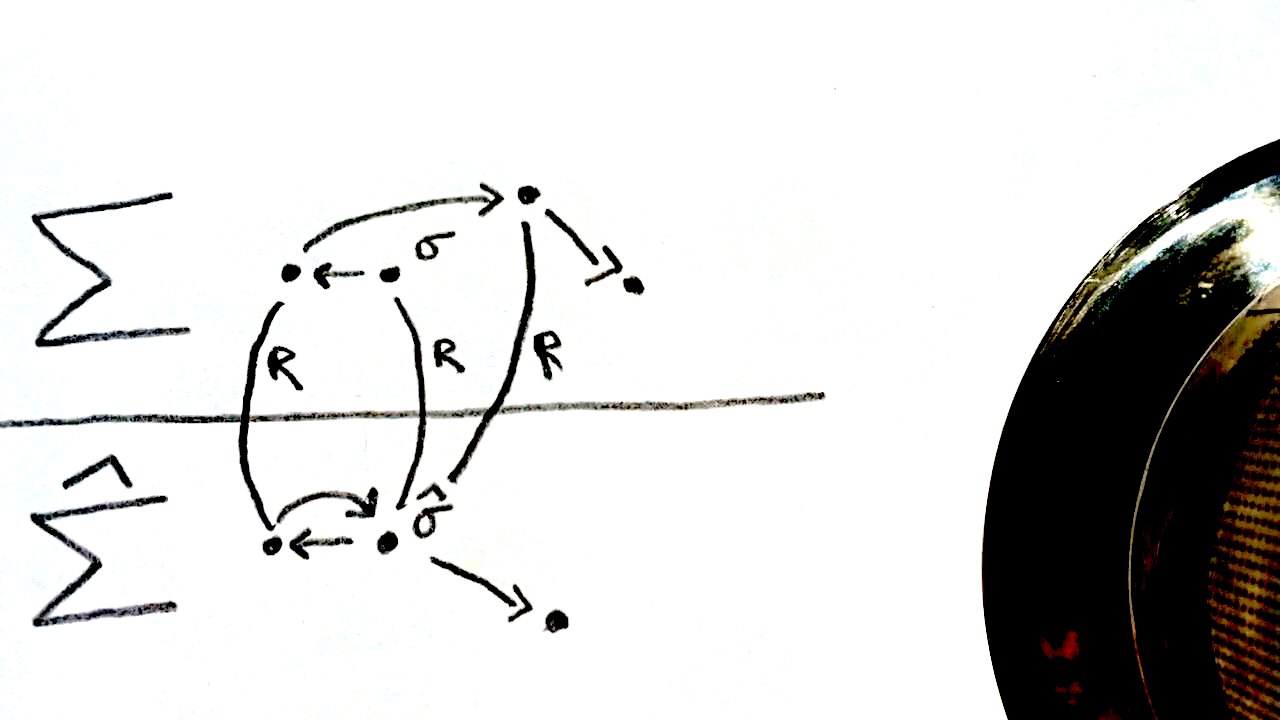 Σ
σ
R R R
Σ̂
σ̂